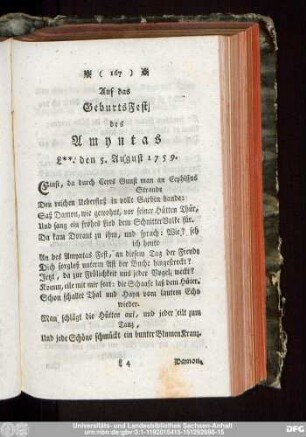 ( 167 )
Auf das
Geburtsfest
des
Amyntas
L**. den 5. August 1759.
Einst, da durch Ceres Gunst man an Cephissus
Strande
Den reichen Ueberfluß in volle Garben bande:
Saß Damon, wie gewohnt, vor seiner Hütten Thür,
Und sang ein frohes Lied dem Schnitter Volke für.
Da kam Dorant zu ihm, und sprach: Wie? seh
ich heute
An des Amyntas Fest, an diesem Tag der Freude
Dich sorgloß unterm Ast der Buche hingestreckt?
Jetzt, da zur Frölichkeit uns jeder Vogel weckt?
Komm, eile mit mir fort: die Schaafe laß dem Hüter.
Schon schallet Thal und Hayn vom lauten Echo
wieder.
Man schlägt die Hütten auf, und jeder eilt zum
Tanz,
Und jede Schöne schmückt ein bunter Blumen Kranz.
L 4
Damon.
Universitäts- und Landesbibliothek Sachsen-Anhalt
DFG